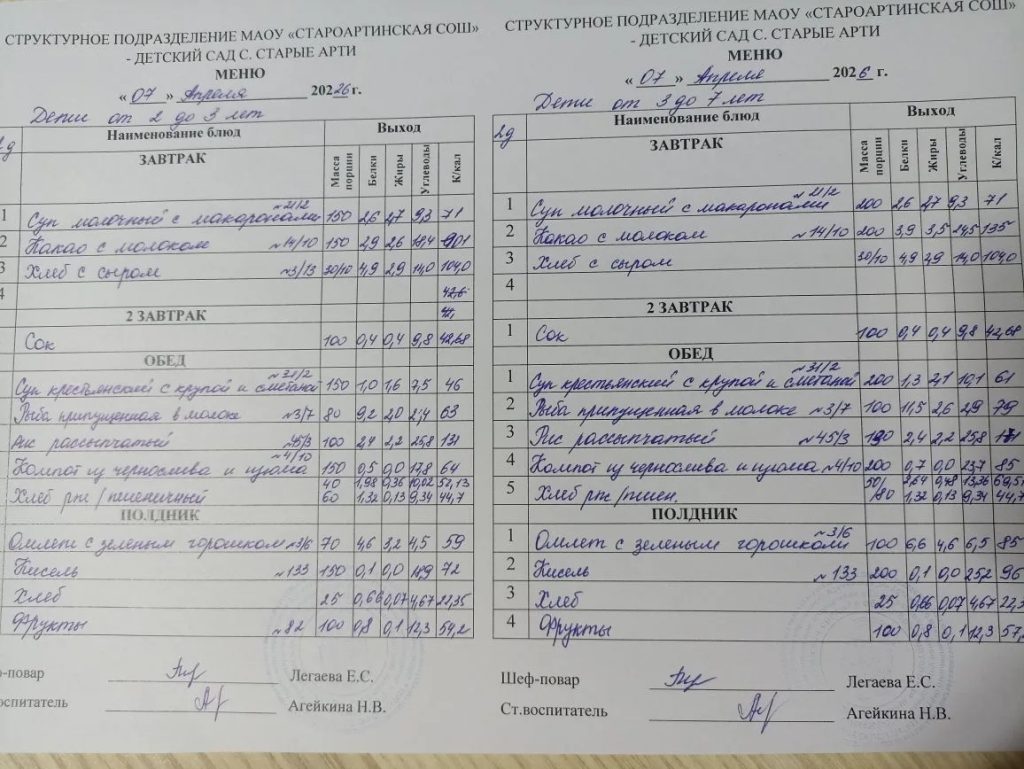 СТРУКТУРНОЕ ПОДРАЗДЕЛЕНИЕ МАОУ «СТАРОАРТИНСКАЯ СОШ»
- ДЕТСКИЙ САД С. СТАРЫЕ АРТИ
МЕНЮ
« 07 » Апреля 2026 г.
Дети от 2 до 3 лет
2д Наименование блюд Выход
ЗАВТРАК Масса порции Белки Жиры Углеводы К/кал
1 Суп молочный с макаронами №21/2 150 2,6 2,7 9,3 71
2 Какао с молоком №14/10 150 2,9 2,6
3 Хлеб с сыром №3/13 30/10 4,9 2,9 14,0 104,0
4 42,6
2 ЗАВТРАК
Сок 100 0,4 0,4 9,8 42,68
ОБЕД
Суп крестьянский с крупой и сметаной №31/2 150 1,0 1,6 7,5 46
Рыба припущенная в молоке №3/7 80 9,2 2,0 2,4 63
Рис рассыпчатый №45/3 100 2,4 2,2 25,8 131
Компот из чернослива и изюма №4/10 150 0,5 0,0 17,8 64
40 1,98 0,36 10,02 52,13
Хлеб рж/пшеничный 60 1,32 0,13 9,34 44,7
ПОЛДНИК
Омлет с зеленым горошком №3/6 70 4,6 3,2 4,5 59
Кисель №133 150 0,1 0,0 18,9 72
Хлеб 25 0,66 0,07 4,67 22,35
Фрукты №82 100 0,8 0,1 12,3 54,2
еф-повар Легаева Е.С.
воспитатель Агейкина Н.В.
СТРУКТУРНОЕ ПОДРАЗДЕЛЕНИЕ МАОУ «СТАРОАРТИНСКАЯ СОШ»
- ДЕТСКИЙ САД С. СТАРЫЕ АРТИ
МЕНЮ
« 07 » Апреля 2026 г.
Дети от 3 до 7 лет
2д Наименование блюд Выход
ЗАВТРАК Масса порции Белки Жиры Углеводы К/кал
1 Суп молочный с макаронами №21/2 200 2,6 2,7 9,3 71
2 Какао с молоком №14/10 200 3,9 3,5 24,5 135
3 Хлеб с сыром 30/10 4,9 2,9 14,0 104,0
4
2 ЗАВТРАК
1 Сок 100 0,4 0,4 9,8 42,68
ОБЕД
1 Суп крестьянский с крупой и сметаной №31/2 200 1,3 2,1 10,1 61
2 Рыба припущенная в молоке №3/7 100 11,5 2,6 2,9 79
3 Рис рассыпчатый №45/3 2,4 2,2 25,8
4 Компот из чернослива и изюма №4/10 200 0,7 0,0 23,7 85
50/ 2,64 0,48 13,36 69,5
5 Хлеб рж/пшен. 80 1,32 0,13 9,34 44,7
ПОЛДНИК
1 Омлет с зеленым горошком №3/6 100 6,6 4,6 6,5 85
2 Кисель №133 200 0,1 0,0 25,2 96
3 Хлеб 25 0,66 0,07 4,67 22,3
4 Фрукты 100 0,8 0,1 12,3 57,
Шеф-повар Легаева Е.С.
Ст.воспитатель Агейкина Н.В.